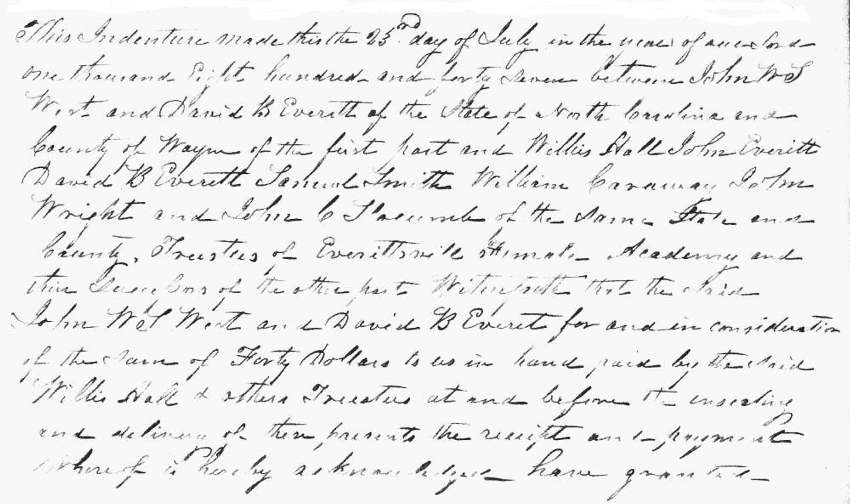 This Indenture made this the 23rd day of July in the year of our Lord
one thousand Eight hundred and forty Seven between John W S
West and David B Everett of the State of North Carolina and
County of Wayne of the first part and Willis Hall John Everett
David B Everett Samuel Smith William Caraway John
Wright and John C Slocumb of the Same State and
County, Trustees of Everittsvill Female Academy and
their Successors of the other part Witnesseth that the Said
John W S West and David B Everet for and in consideration
of the Sum of Forty Dollars to us in hand paid by the Said
Willis Hall & others Trustees at and before the
and delivery of these presents the receipt and payment
Whereof is hereby acknowledged have granted